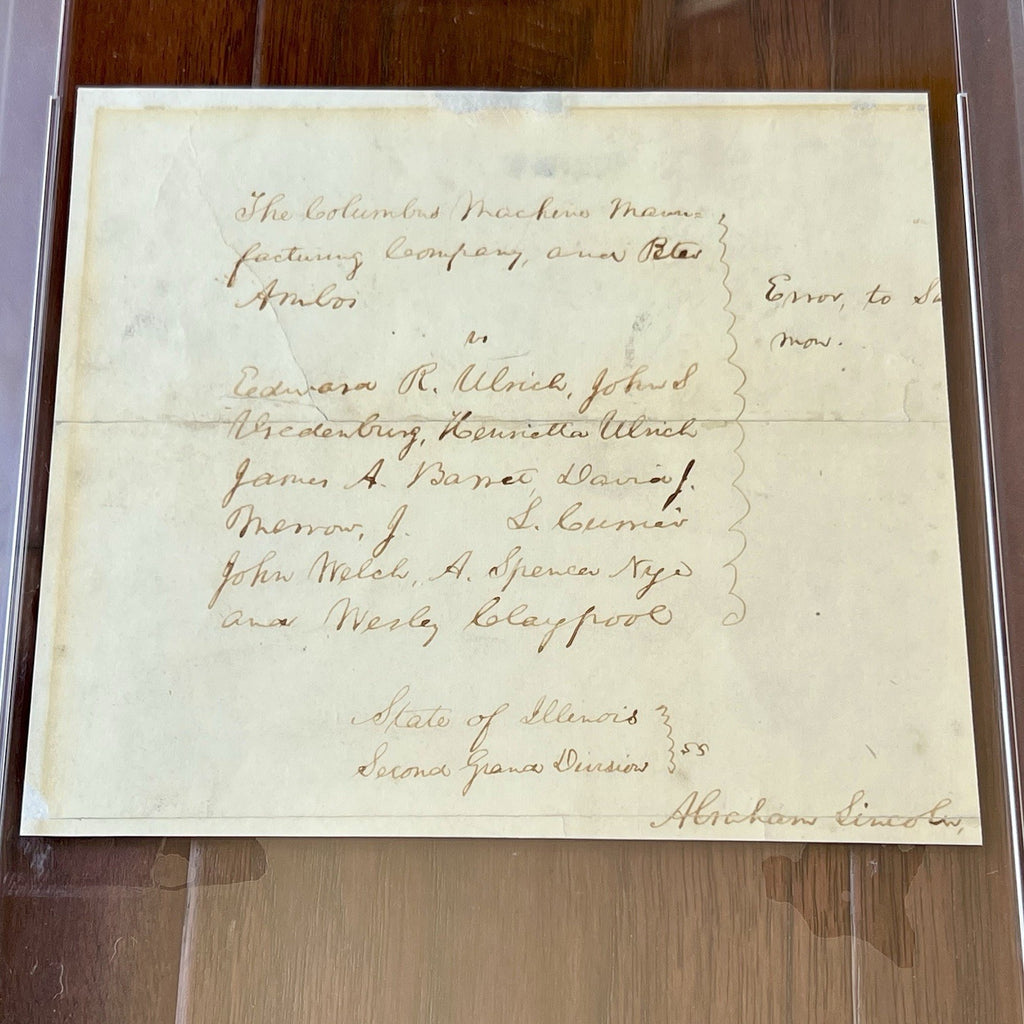 The Columbus Machine Manu=
facturing Company, and Peter
Ambos
vs
Edward R. Ulrich, John S
Vredenburg, Henrietta Ulrich
James A. Barret, David J.
Merrow, J. L. Currier
John Welch, A. Spencer Nye
and Wesley Claypool
Error, to
mon.
State of Illinois
Second Grand Division
ss
Abraham Lincoln,